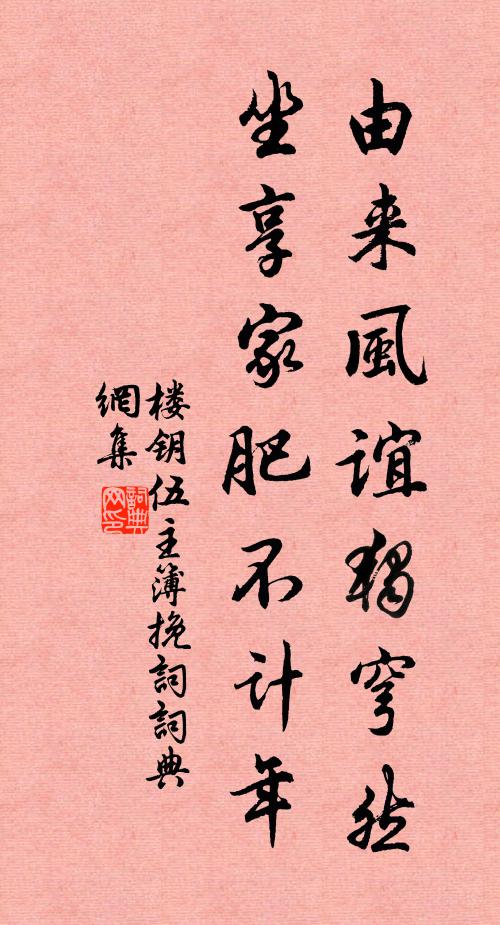 由来風誼獨穹然
坐享家肥不计年
楼钥伍主簿挽詞詞典
網集
詞典
网印